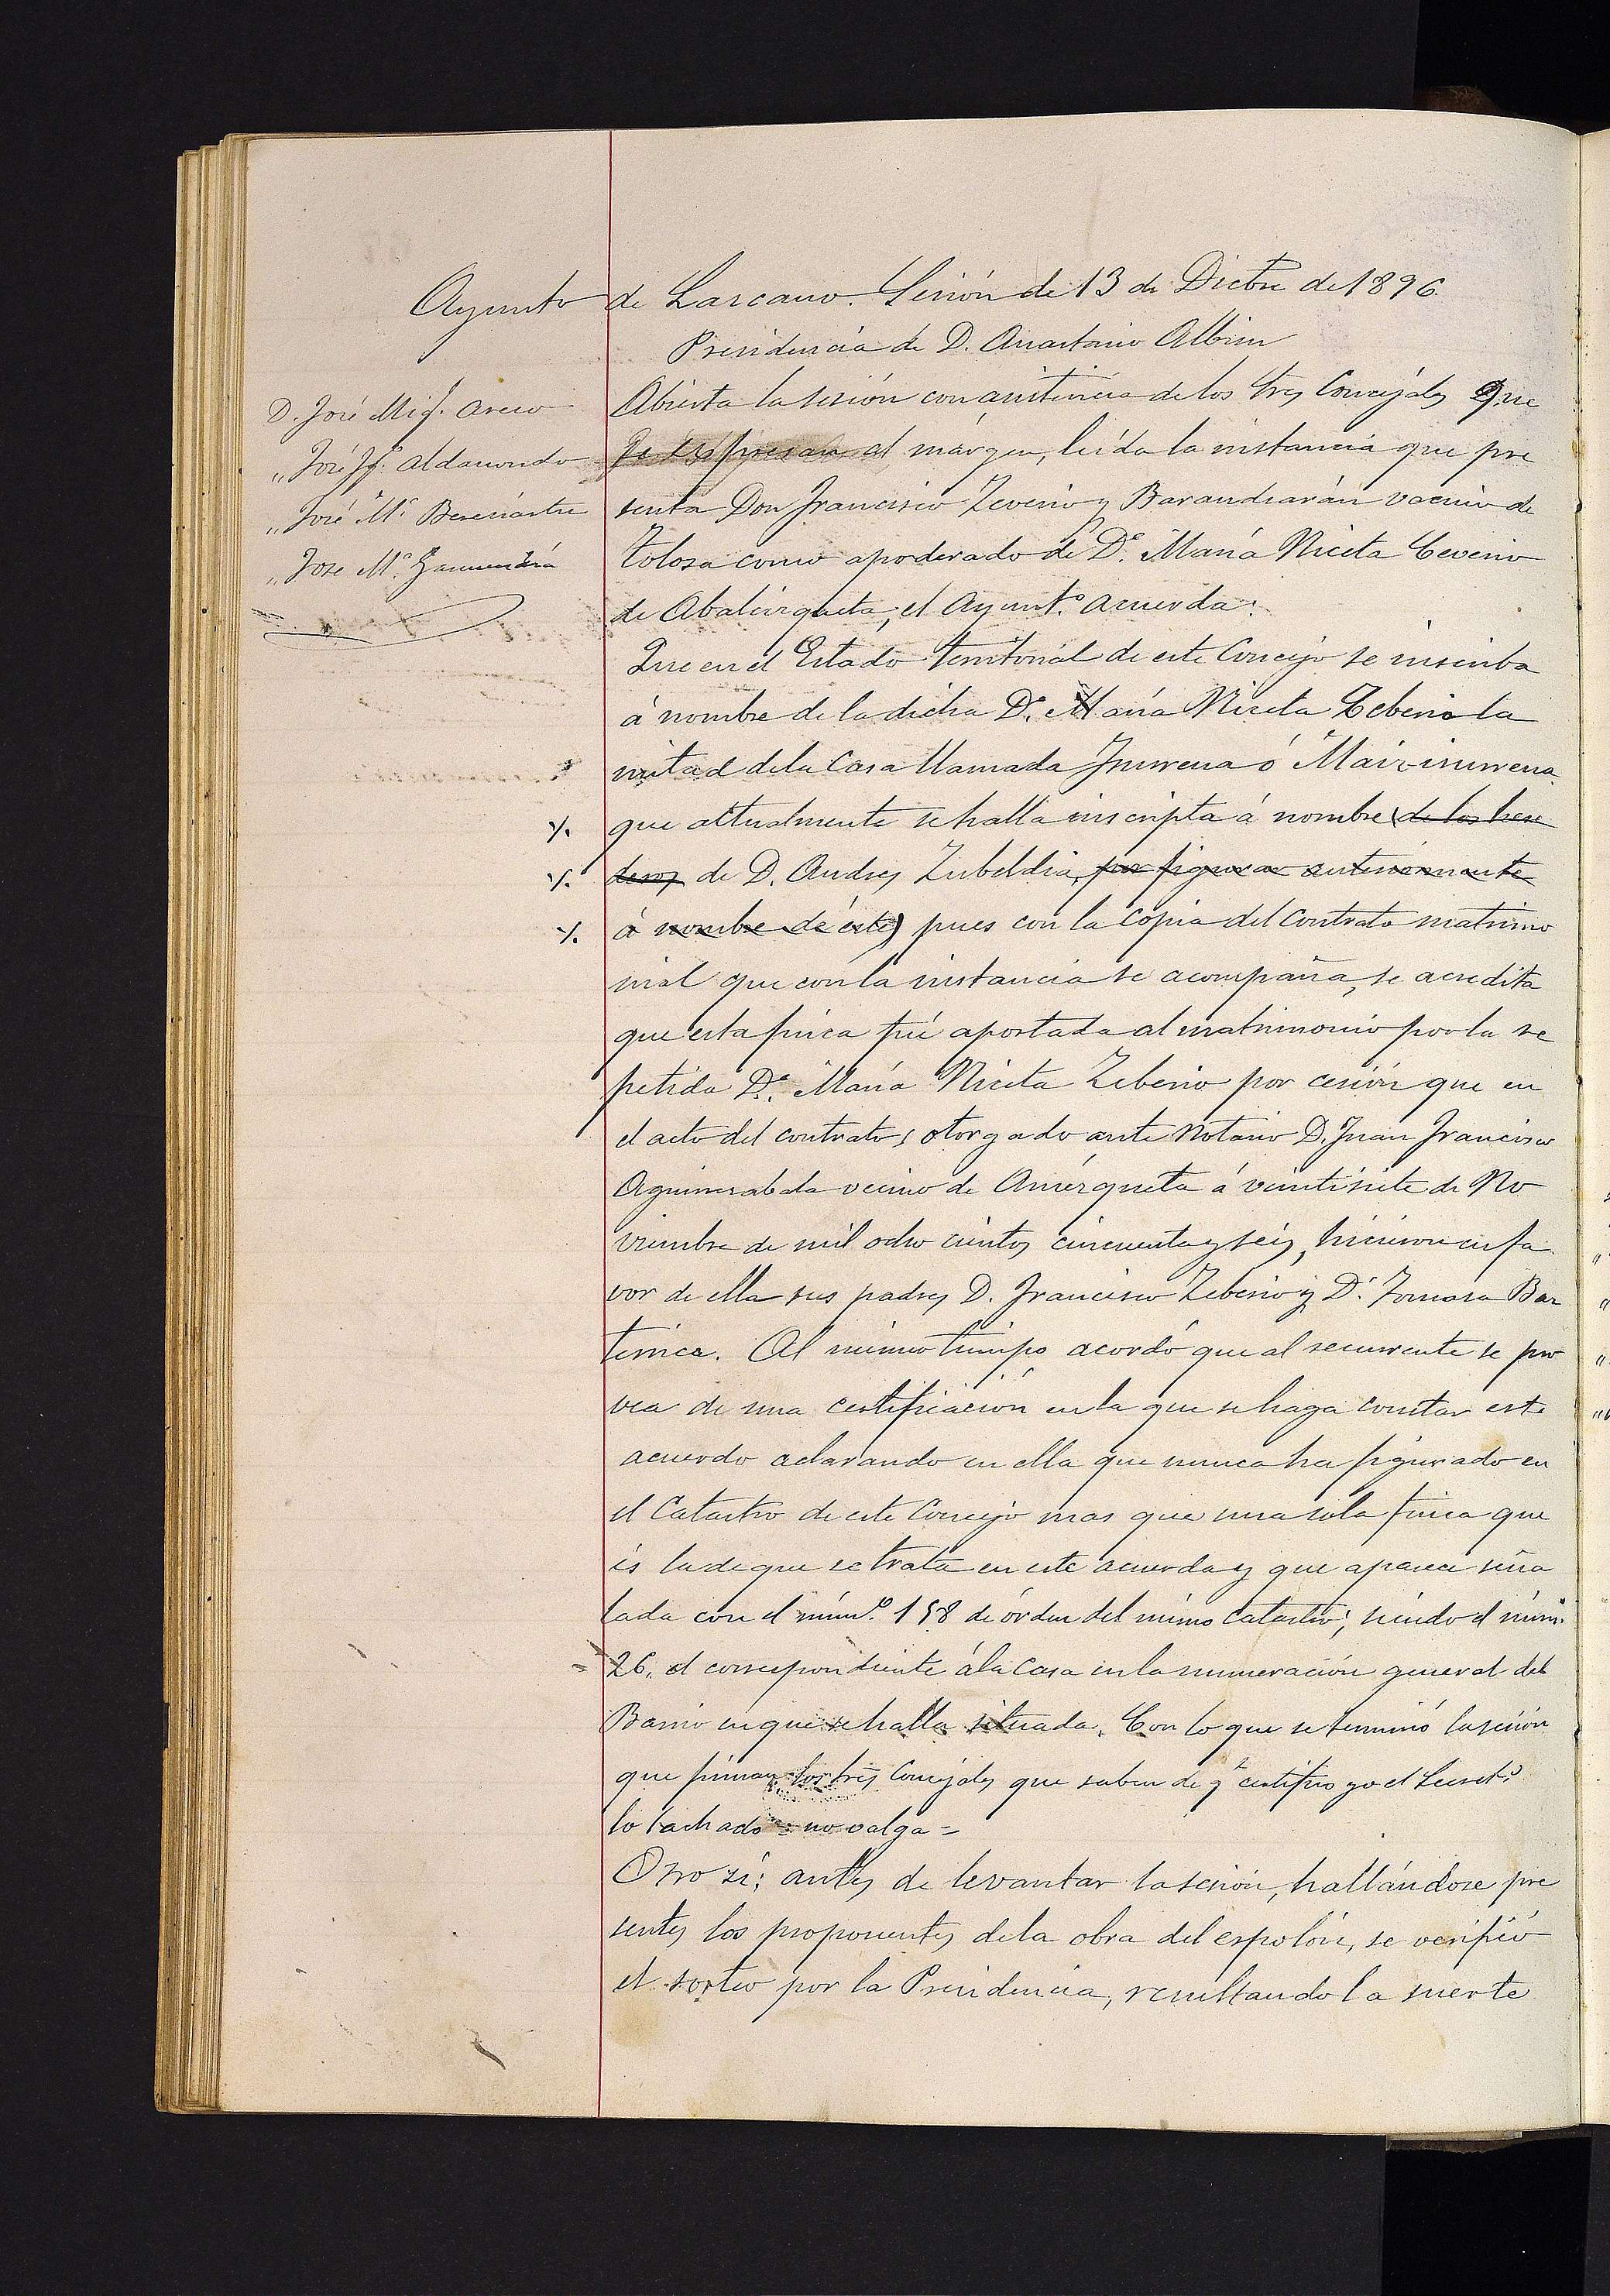 Ayunto de Lazcano. Sesión de 13 de Dicbre de 1896.
Presidencia de D. Anastasio Albisu
D. José Mig.l Areso
„ José Ig.o Aldasoro
„ José M.a
„ Jose M.a Garmendia
Abierta la sesión con asistencia de los tres Concejales que
se espresan al márgen, leída la instancia que pre
senta Don Francisco Zeverio y Barandiarán vecino de
Tolosa como apoderado de D.a María Niceta Ceverio
de Abalcisqueta, el Ayunt.o acuerda:
Que en el Estado territorial de este Concejo se inscriba
á nombre de la dicha D.a María Niceta Zeberio la
mitad de la Casa llamada Ynurrena ó Maiz-inurrena
que attualmente se halla inscripta á nombre (de los here
deros de D. Andres Zubeldia, por figurar anteriormente
á nombre de éste) pues con la copia del Contrato matrimo
nial que con la instancia se acompaña, se acredita
que esta finca fué aportada al matrimonio por la re
petida D.a María Niceta Zeberio por cesión que en
el acto del contrato, otorgado ante Notario D. Juan Francisco
Aguinsabala vecino de Amezqueta á veintisiete de No
viembre de mil ocho cientos cincuenta y seis, hicieron en fa
vor de ella sus padres D. Francisco Zeberio y D.a Tomasa Bar
Al mismo tiempo acordó que al recurrente se pro
vea de una certificación en la que se haga constar este
acuerdo aclarando en ella que nunca ha figurado en
el Catastro de este Concejo mas que una sola finca que
és la de que se trata en este acuerdo y que aparece seña
lada con el núm.o 158 de órden del mismo Catastro; siendo el núm.
26, el correspondiente á la Casa en la numeración general del
Barrio en que se halla situada. Con lo que se terminó la sesión
que firman los tres Concejales que saben de q.e certifico yo el Secret.o
lo tachado = no valga =
Otro sí: antes de levantar la sesión, hallándose pre
sentes los proponentes de la obra del espolón, se verificó
el sorteo por la Presidencia, resultando la suerte